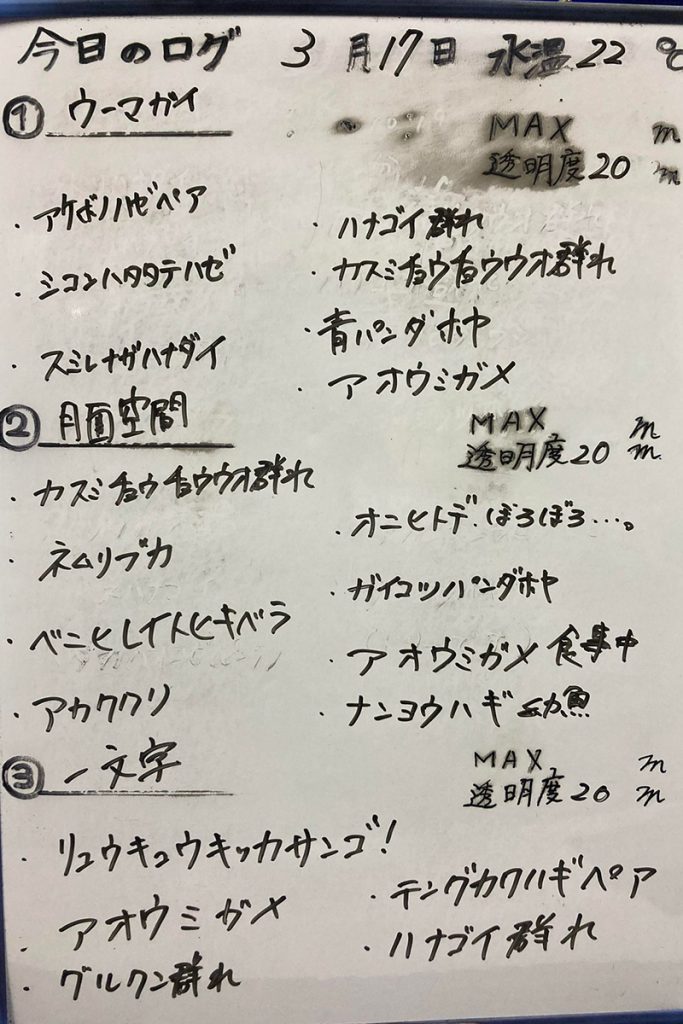 今日のログ 3月17日 水温22℃
① ウーマガイ
MAX m
透明度20 m
・アケボノハゼペア
・シコンハタタテハゼ
・スミレナガハナダイ
・ハナゴイ群れ
・カスミチョウチョウウオ群れ
・青パンダホヤ
・アオウミガメ
② 月面空間
MAX m
透明度20 m
・カスミチョウチョウウオ群れ
・ネムリブカ
・ベニヒレイトヒキベラ
・アカククリ
・オニヒトデ ぼろぼろ…。
・ガイコツパンダホヤ
・アオウミガメ 食事中
・ナンヨウハギ 幼魚
③ 一文字
MAX m
透明度20 m
・リュウキュウキッカサンゴ!
・アオウミガメ
・グルクン群れ
・テングカワハギペア
・ハナゴイ群れ